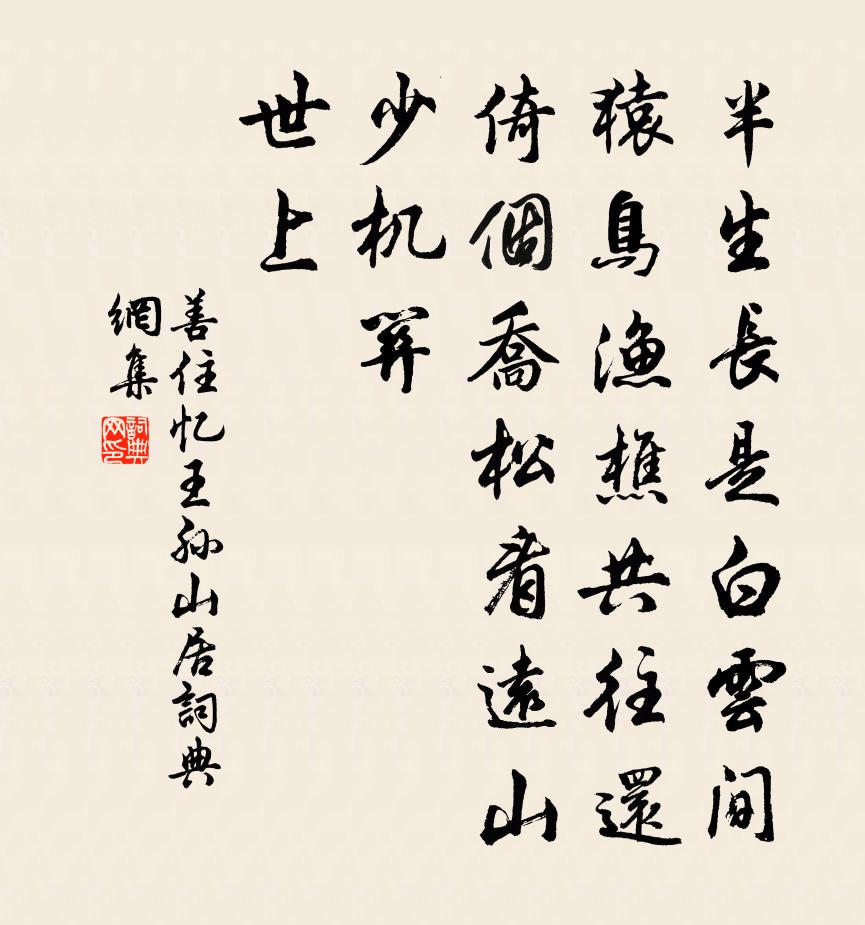 半生長是白雲間
猿鳥漁樵共往還
倚個喬松看遠山
少机筭
世上
善住忆王孙山居詞典
網集
詞典
网印